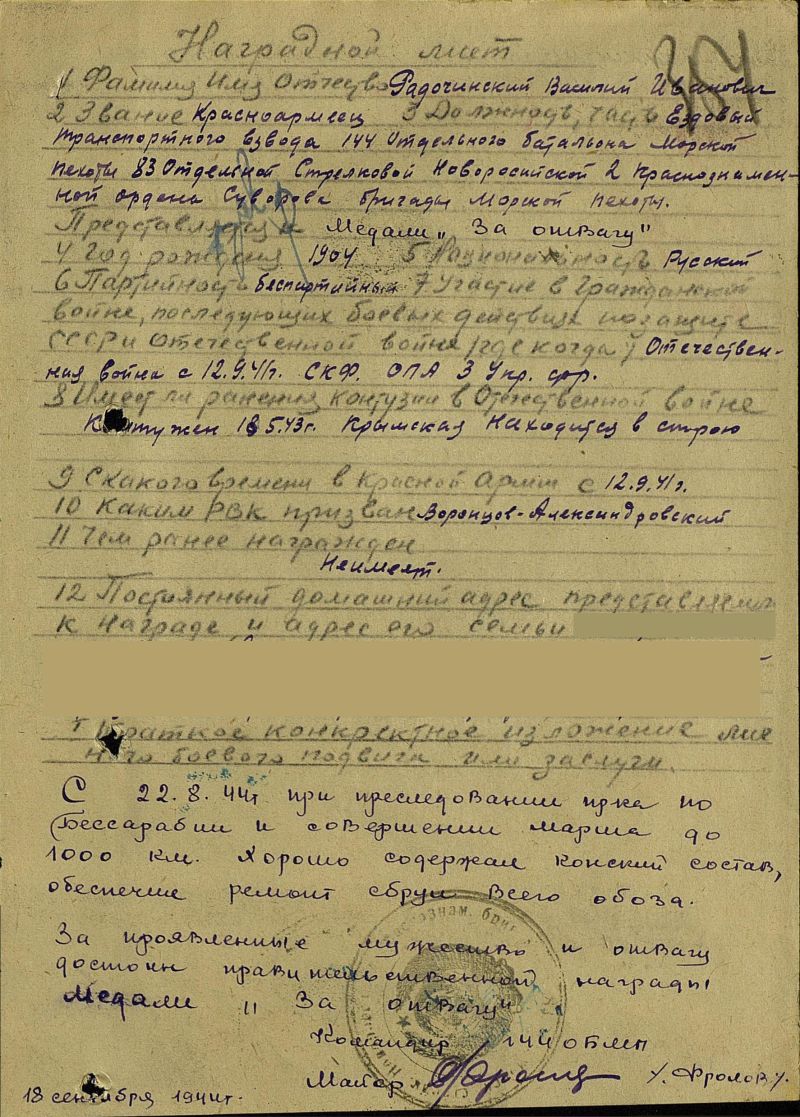 Наградной лист
1 Фамилия Имя Отчество Радочинский Василий Иванович
2 Звание Красноармеец 3 Должность, часть Ездовый
транспортного взвода 144 отдельного батальона Морской
пехоты 83 Отдельной Стрелковой Новоросийской 2 Краснознамен-
ной ордена Суворова бригады Морской пехоты.
Представляется к Медали „За отвагу"
4 Год рождения 1904 5 Национальность Русский
6 Партийность беспартийный 7 Участие в гражданской
войне, последующих боевых действиях по защите
СССР и отечественной войне (где когда) Отечествен-
ная война с 12.9.41г. СКФ. ОПА 3 Укр. фр.
8 Имеет ли ранения контузии в Отечественной войне
Контужен 18 5.43г. Крымская Находится в строю
9 С какого времени в Красной Армии с 12.9.41г.
10 Каким РВК призван Воронцов-Александровский
11 Чем ранее награжден
Неимеет.
12 Постоянный домашний адрес представляемого
к награде и адрес его семьи
Краткое конкректное изложение лич
ного боевого подвига или заслуги.
С 22.8.44г при преследовании пр-ка по
Бессарабии и совершении марша до
1000 км. Хорошо содержал конский состав,
обеспечил ремонт сбруи всего обоза.
За проявленные мужество и отвагу
достоин правительственной награды
Медали „За отвагу"
Командир 144 ОБМП
Майор /. Фролов /.
18 сентября 1944г.